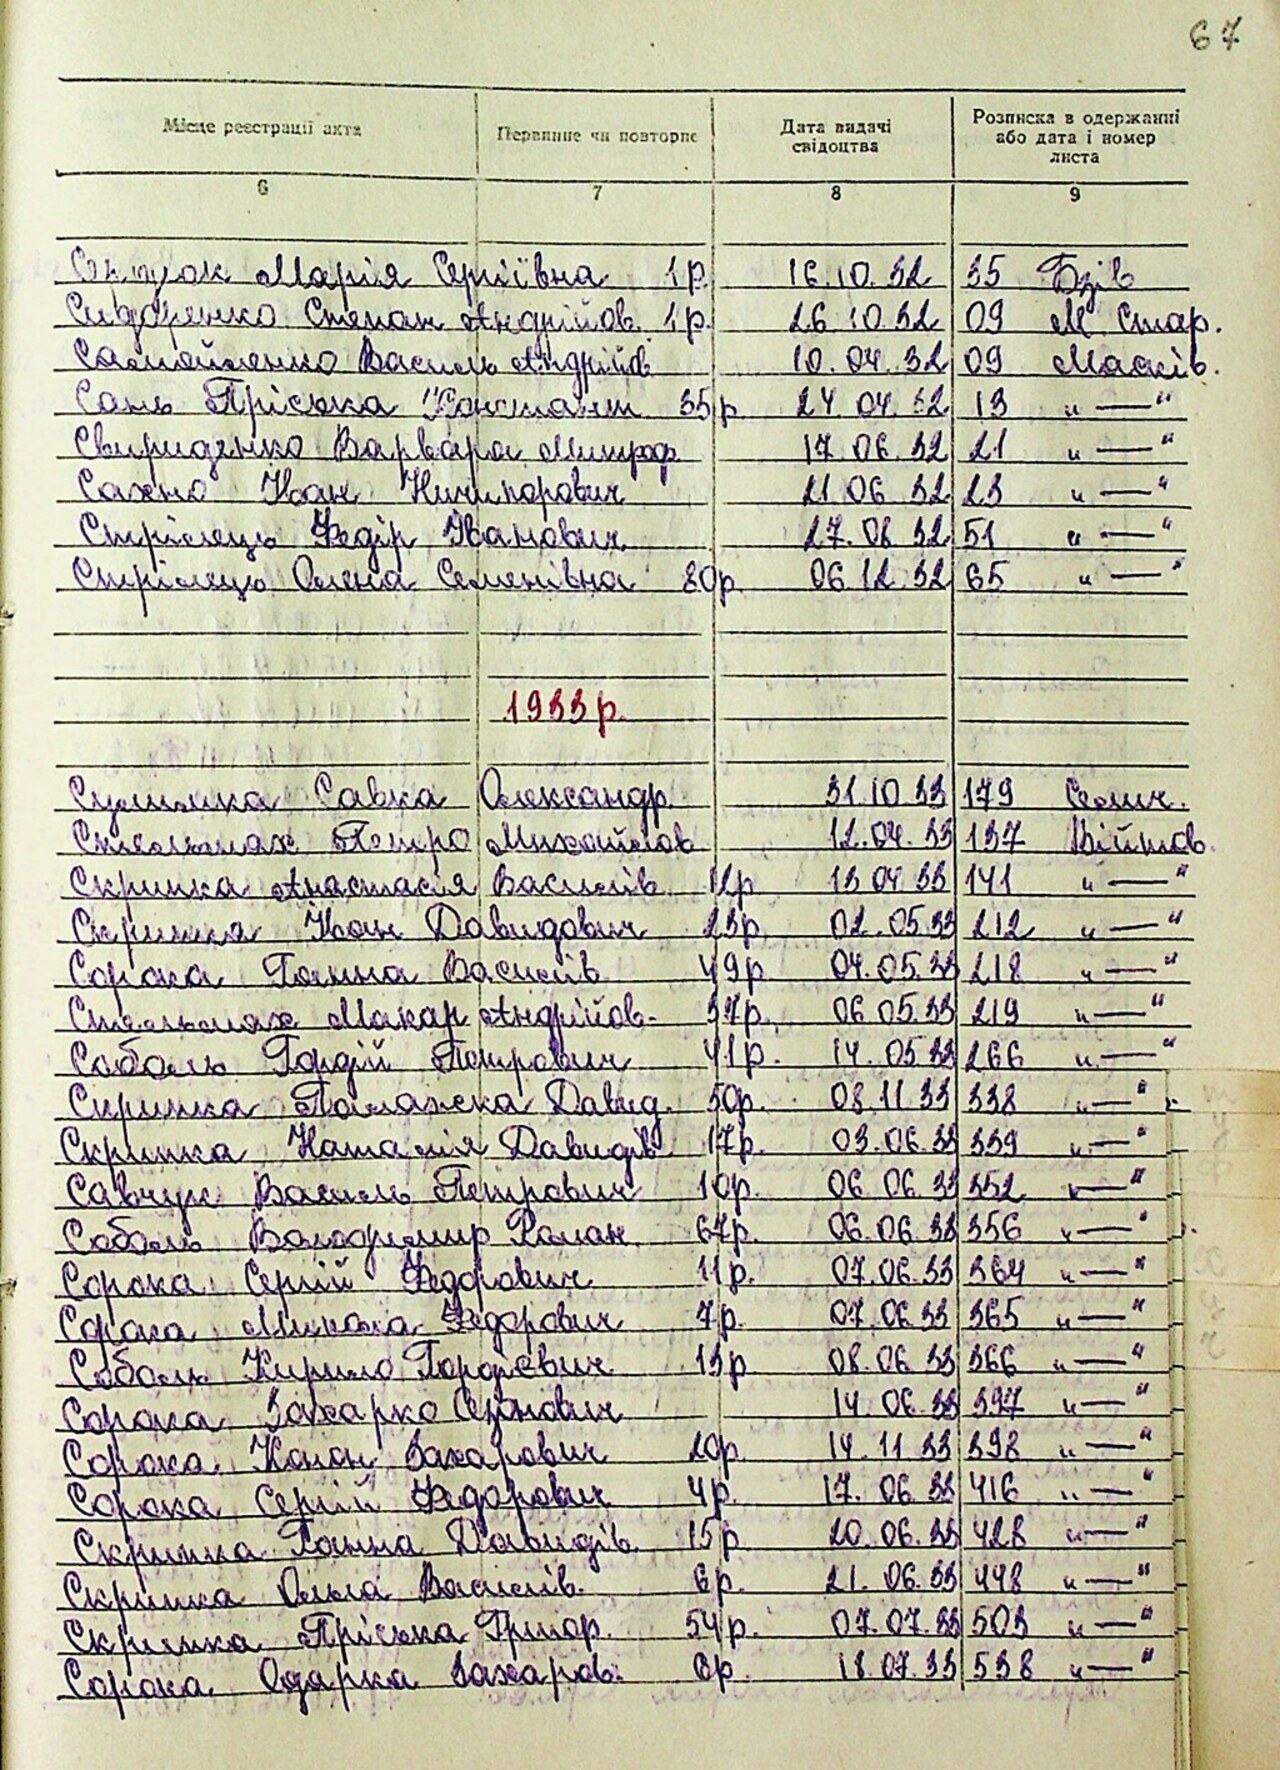 67
Місце реєстрації акта Первинне чи повторне Дата видачі свідоцтва Розписка в одержанні або дата і номер листа
6 7 8 9
Марія Сергіївна 1р. 16.10.32 35 Бзів
Сидоренко Степан Андрійов. 1р. 26.10.32 09 М. Стар.
Самойленко Василь Андрійов. 10.04.32 09 Масків.
Сань Пріська Констант. 35р. 24.04.32 13 "—"
Свириденко Варвара Митроф. 17.06.32 21 "—"
Сахно Іван Ничипорович 21.06.32 23 "—"
Стрілець Федір Іванович 27.08.32 51 "—"
Стрілець Олена Семенівна 80р. 06.12.32 65 "—"
1933р.
Савка Олександр. 31.10.33 179 Селич.
Стельмах Петро Михайлов. 12.04.33 137 Війтов.
Скрипка Анастасія Василів. 12р 13.04.33 141 "—"
Скрипка Іван Давидович 23р. 02.05.33 212 "—"
Сорока Ганна Василів. 49р. 04.05.33 218 "—"
Стельмах Макар Андрійов. 37р. 06.05.33 219 "—"
Соболь Гордій Петрович 41р. 14.05.33 266 "—"
Скрипка Палажка Давид. 50р. 08.11.33 338 "—"
Скрипка Наталія Давидів. 17р. 03.06.33 339 "—"
Савчук Василь Петрович 10р. 06.06.33 352 "—"
Соболь Володимир Роман. 67р. 06.06.33 356 "—"
Сорока Сергій Федорович 11р. 07.06.33 364 "—"
Сорока Микола Федорович 7р. 07.06.33 365 "—"
Соболь Кирило Гордієвич 13р. 08.06.33 366 "—"
Сорока Захарко Созонович 14.06.33 397 "—"
Сорока Конон Захарович 20р. 14.11.33 398 "—"
Сорока Сергій Федорович 4р. 17.06.33 416 "—"
Скрипка Ганна Давидів. 15р. 20.06.33 428 "—"
Скрипка Ольга Василів. 6р. 21.06.33 448 "—"
Скрипка Пріська Григор. 54р. 07.07.33 503 "—"
Сорока Одарка Захаров. 6р. 18.07.33 538 "—"